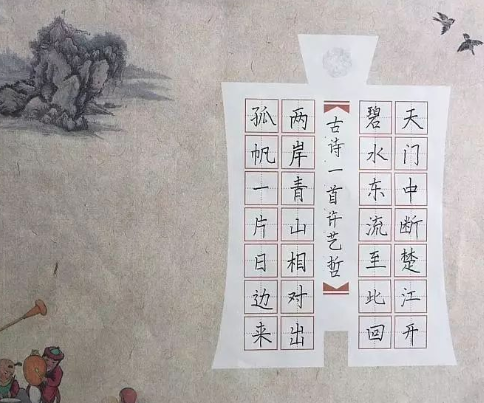 天门中断楚江开
碧水东流至此回
古诗一首许艺哲
两岸青山相对出
孤帆一片日边来